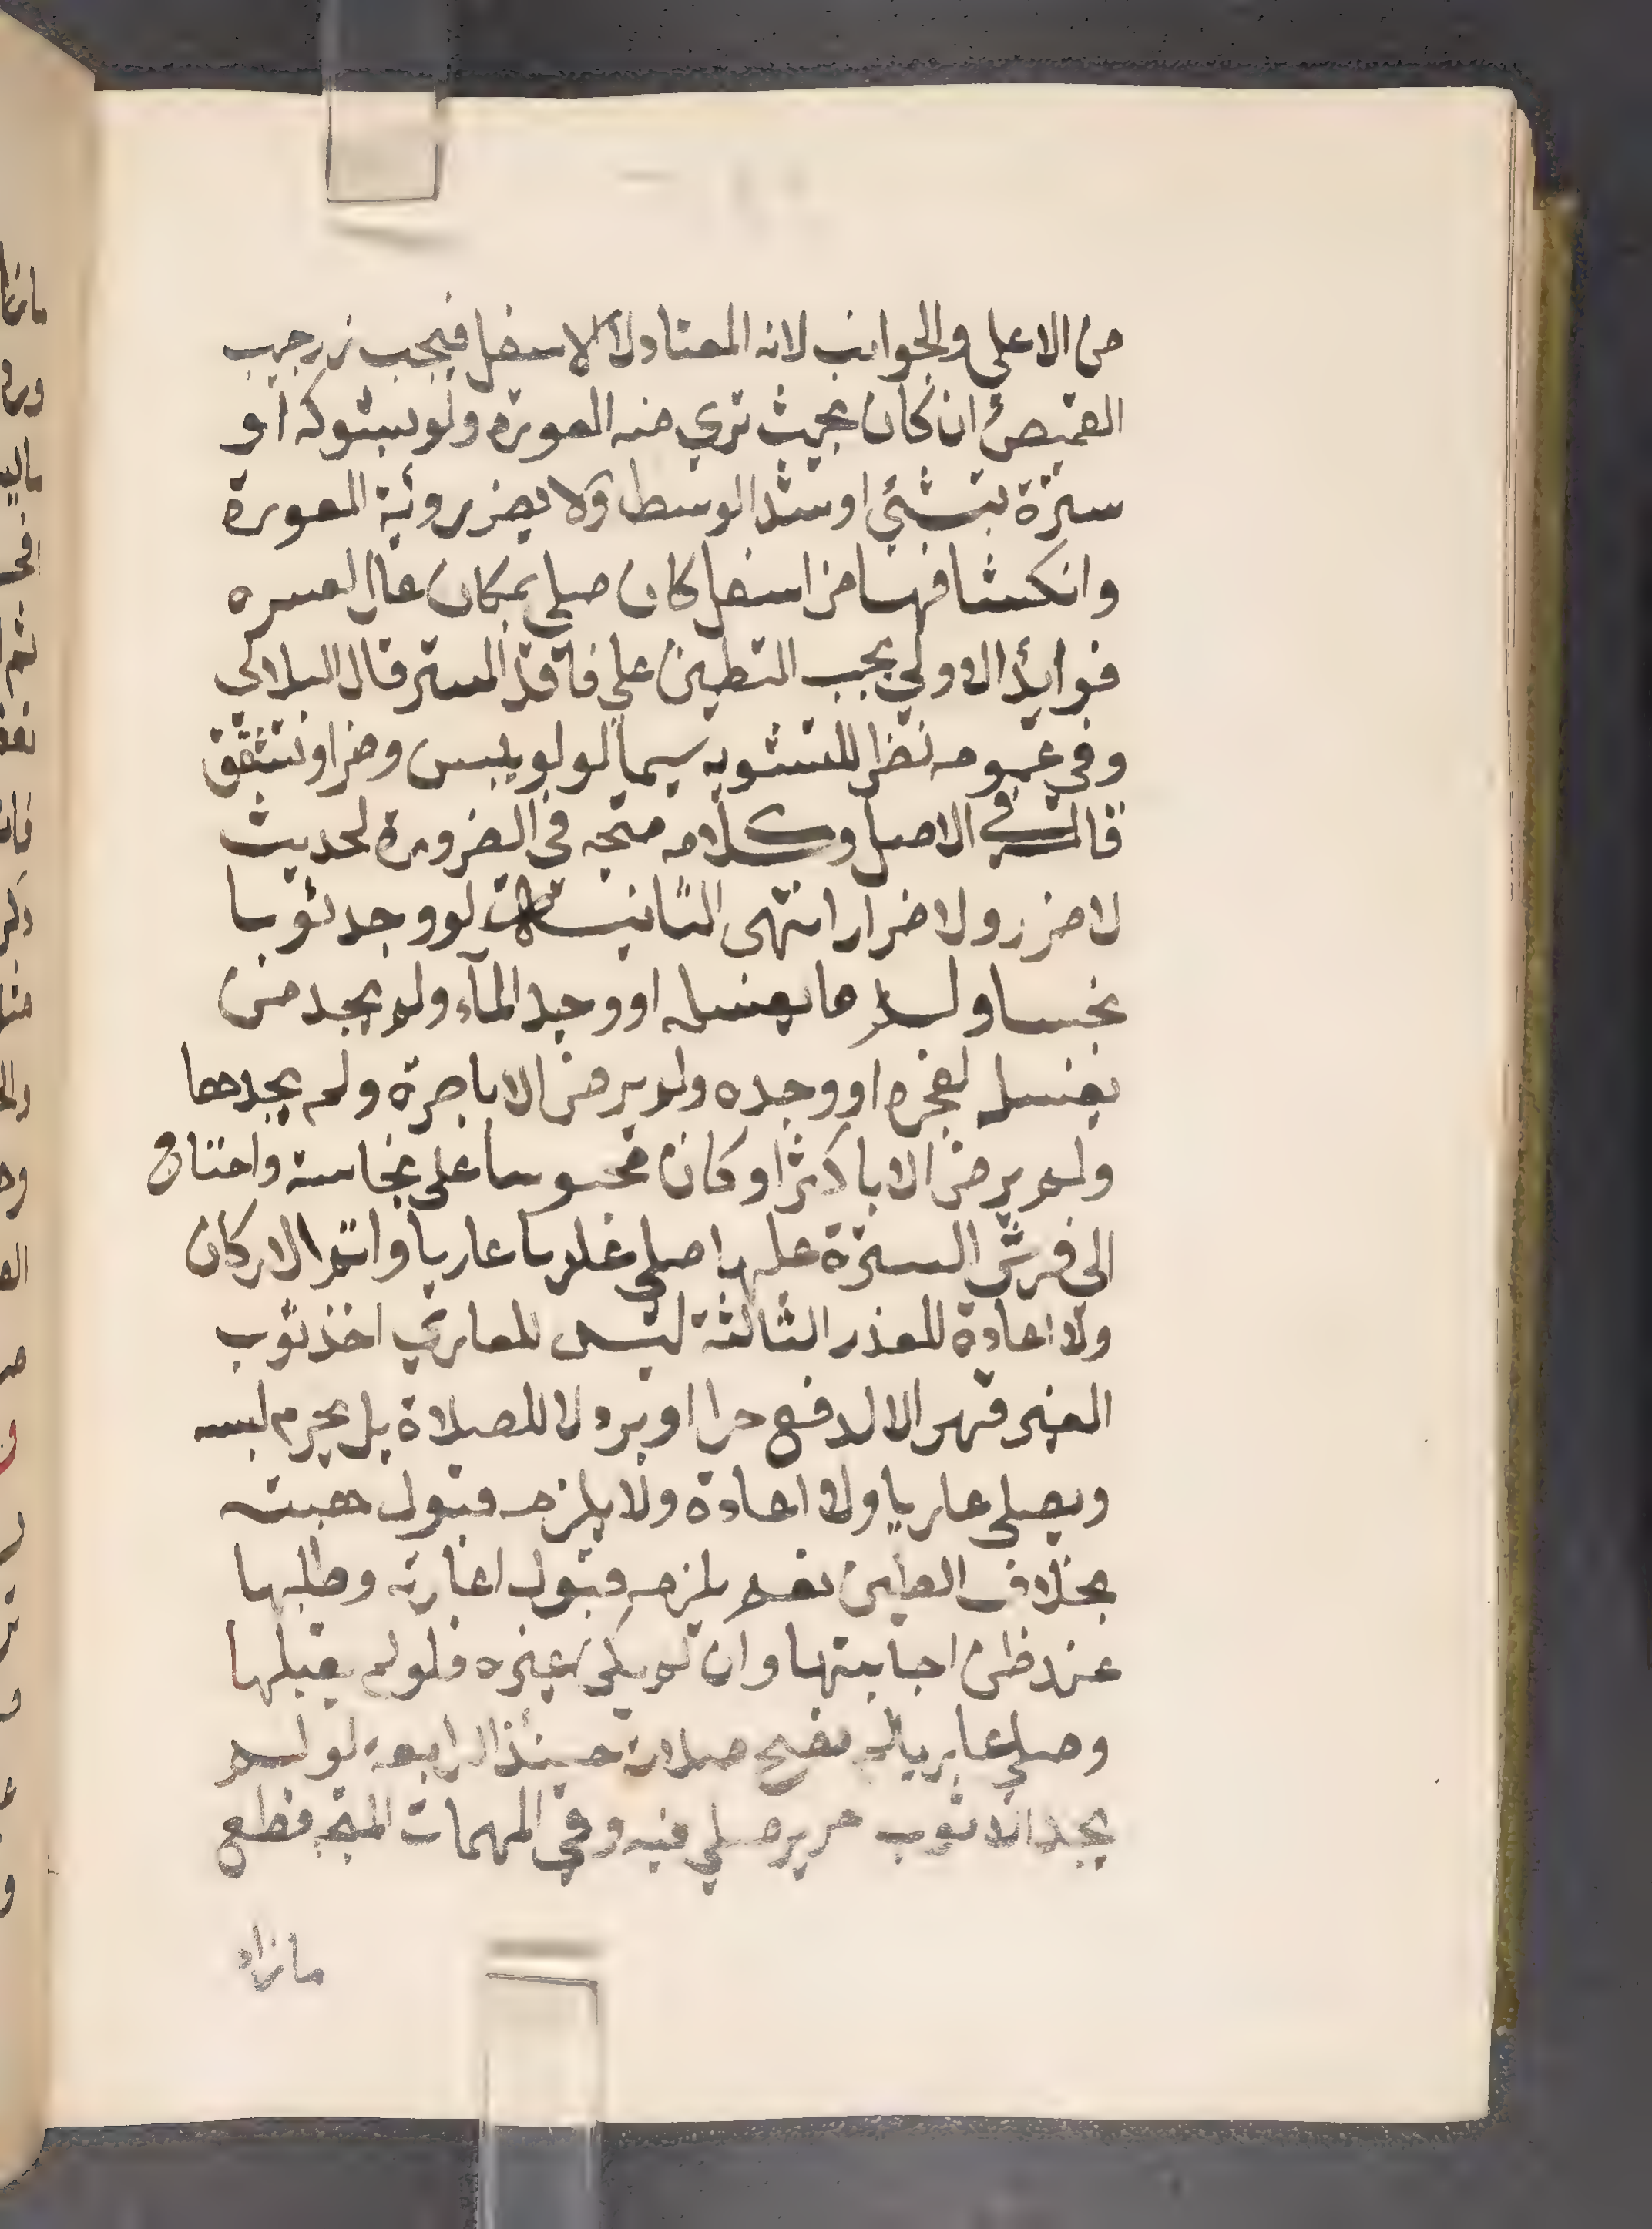 من الاعلي والجوانب لانه المعتاد لا الاسفل فيجب زر جيب
القميص ان كان بحيث تري منه العورة ولو بشوكة او
سترة بشئ او شد الوسط ولا يضر روئية العورة
وانكشافها من اسفل كان صلي بمكان عال لعسره
فوايد الاولي يجب التطين علي فاقد الستر قال البلالي
وفي عمومه نظر للتشويه سيما لو لو يبس وضر او تشقق
قال في الاصل وكلامه متجه في الضرورة لحديث
لا ضرر ولا ضرار انتهى الثانية لو وجد ثوبا
نجسا ولم ما يغسله او وجد المآء ولم يجد من
يغسل لعجزه او وجده ولم يرض الا باجرة ولم يجدها
ولم يرض الا باكثر او كان محبوسا على نجاسة واحتاج
الى فرش السترة عليها صلي عاريا واتم الاركان
ولا اعادة للعذر الثالثة ليس للعاري اخذ ثوب
الغير قهرا الا لدفع حرا او برد لا للصلاة بل يحرم لبسه
ويصلي عاريا ولا اعادة ولا يلزمه قبول هبته
بخلاف الطين نعم يلزمه قبول اعارته وطلبها
عند ظن اجابتها وان لم يكن غيره فلو لم يقبلها
وصلي عاريا لم تصح صلاته حينئذ الرابعة لو لم
يجد الا ثوب حرير صلي فيه وفي المهمات المتجه قطع
ما زاد